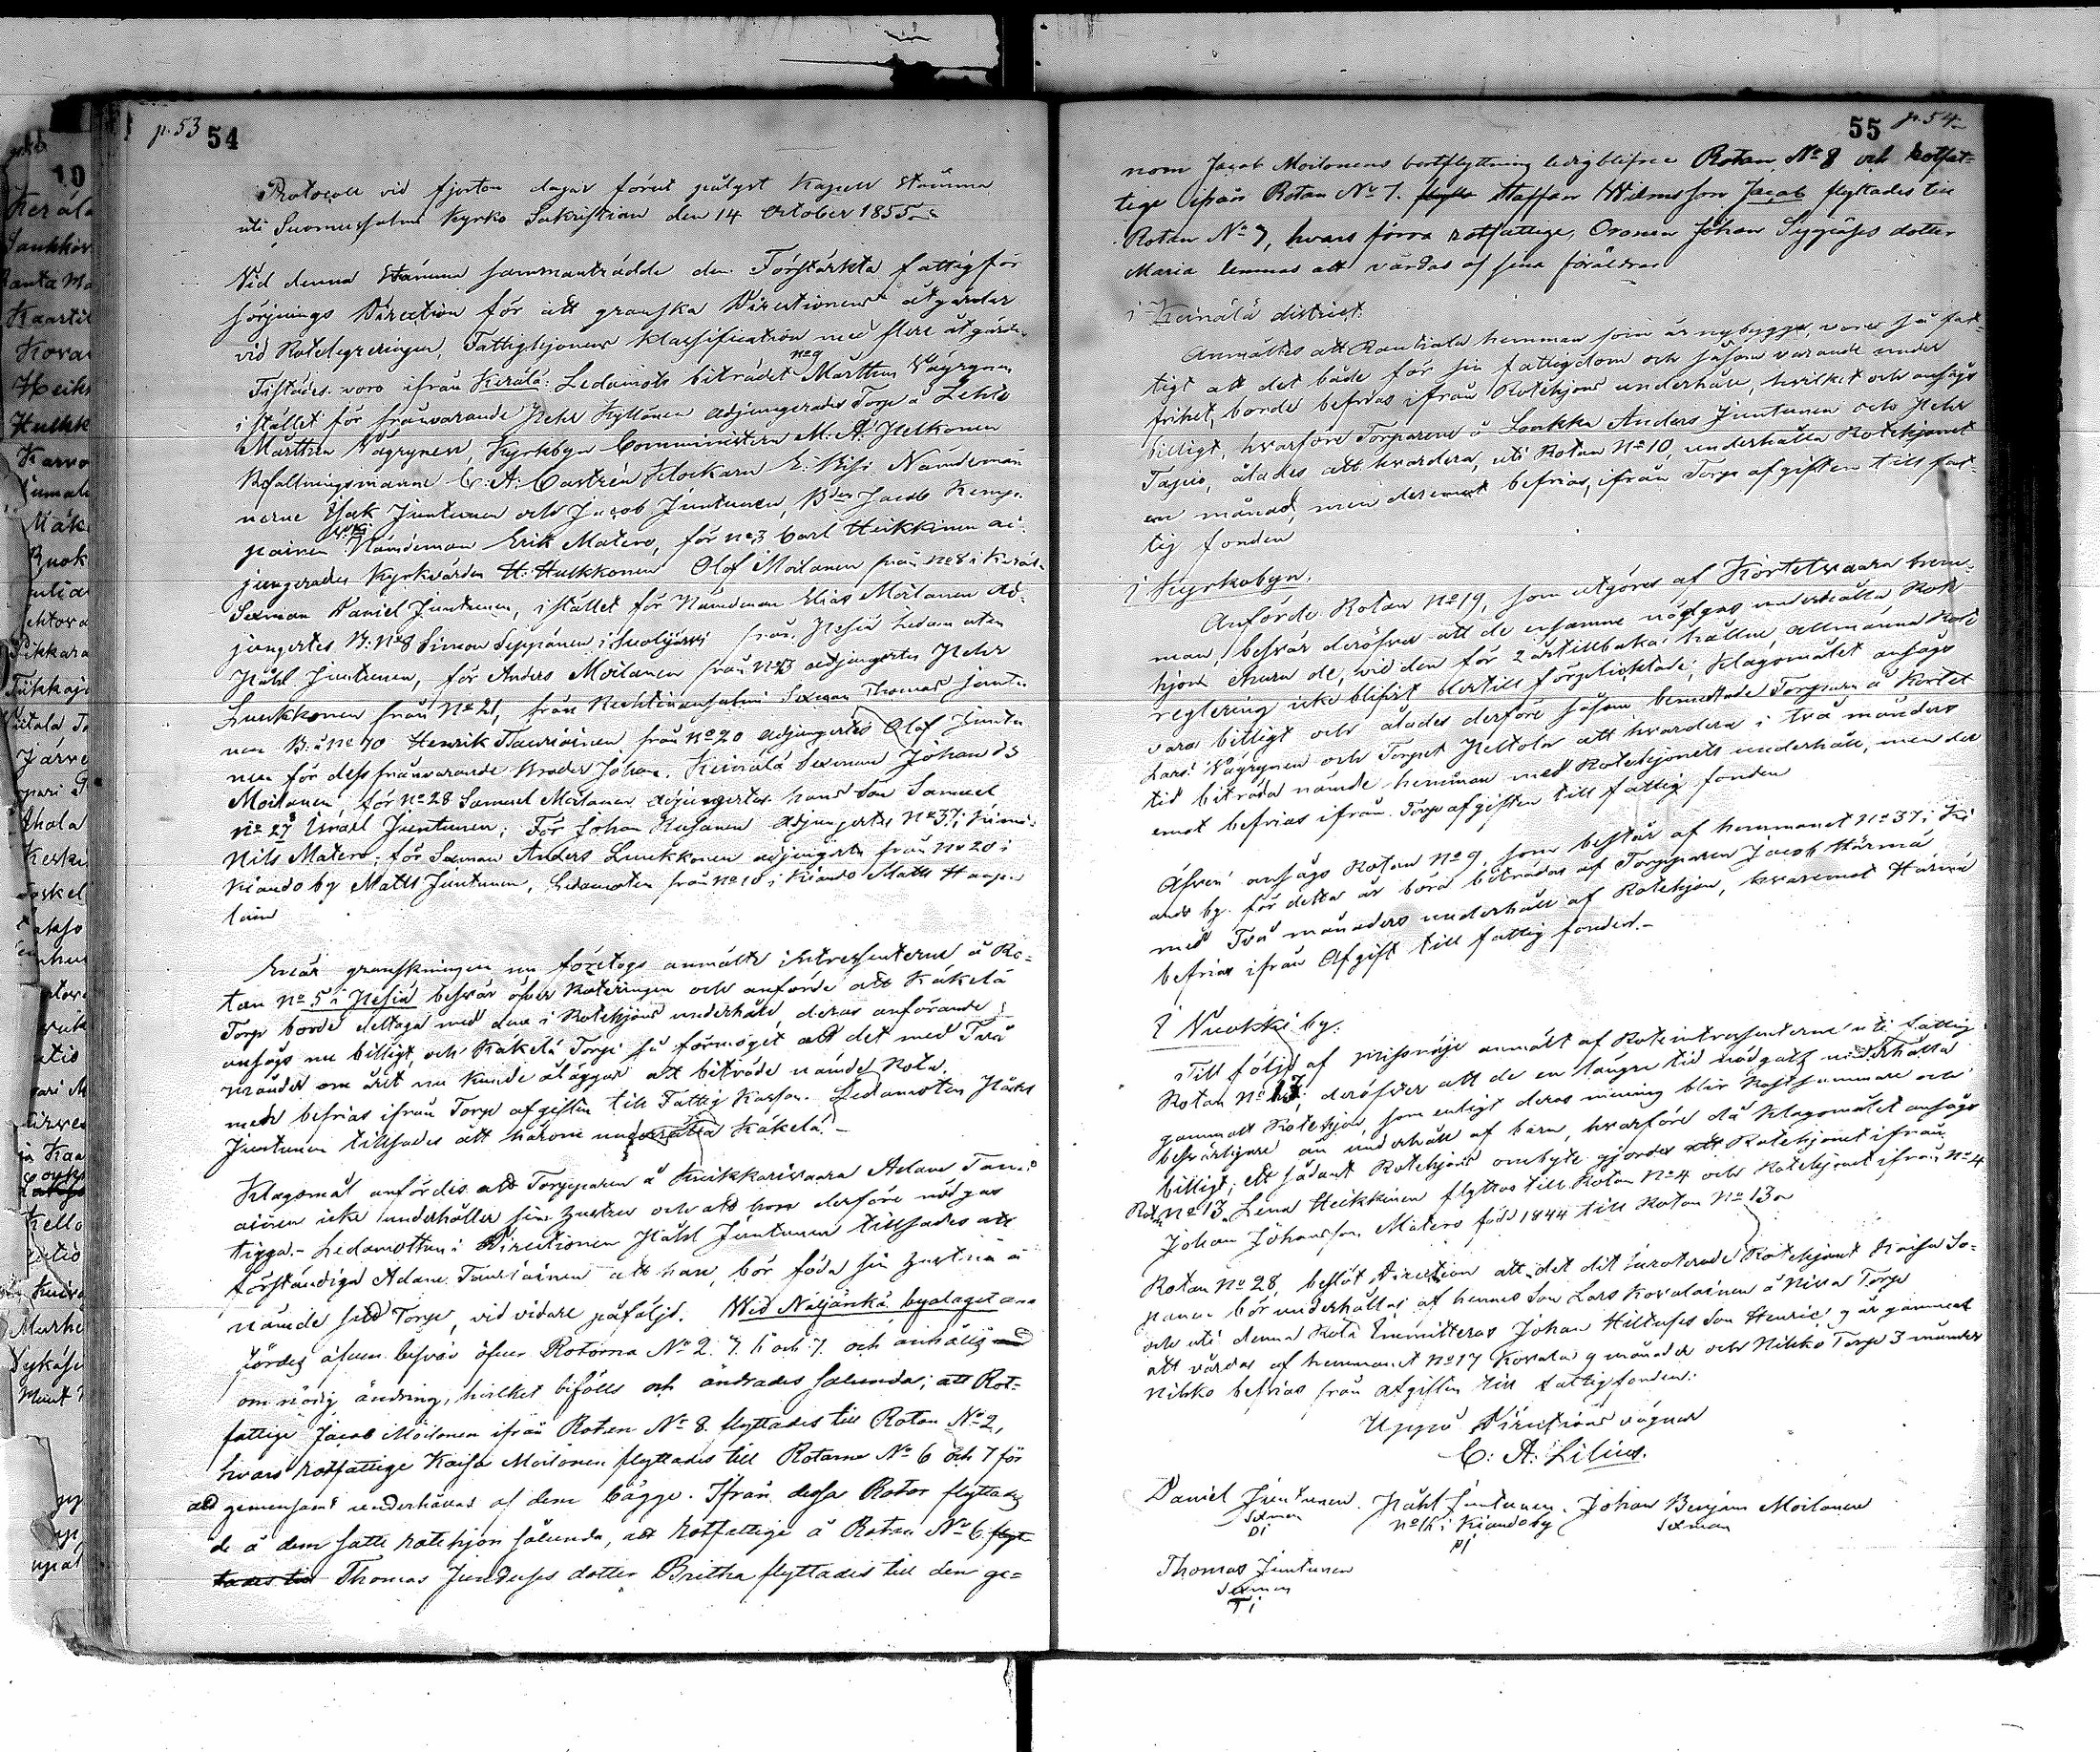 p. 53 54
Protocoll vid fjorton dagar förut pålyst Kapell Stämma
uti Suomussalmi Kyrko Sakristian den 14 October 1855.
Vid denna Stämma sammanträdde den Förstärkta fattigför
sörjnings Direction för att granska Directionens åtgärder
vid Rotelegreringen, Fattighjonens Klassification med flere åtgärder
Tillstädes voro ifrån Kerälä: Ledamots biträdet no 9 Matthias Väyrynen
i stället för frånvarande Petter Kyllönen adjungerades Torp. å Lehto
Matthias Väyrynen, Kyrkobyn Comministern M. A. Pelkonen
Befallningsmannen C. A. Castrén Klockaren E. Kisi Nämdemän
nerne Isak Juntunen och Jacob Juntunen, Bden Jacob Kemp-
painen Nämdeman Erik Matero, för no 3 Carl Heikkinen ad-
jungerades Kyrkvärden H. Hulkkonen Olof Moilanen från no 8 i Kerälä
Sexman Daniel Juntunen, i stället för Nämdeman Elias Moilanen ad-
jungertes B. no 8 Simon Seppänen i Suolijärvi från Pesiö Ledamoten
Påhl Juntunen, för Anders Moilanen från no 43 adjungertes Pehr
Luukkonen från No 21, från Ruhtinansalmi Sexman Thomas Juntu
nen B. å No 70 Henrik Tauriainen från no 20 adjungertes Olof Juntu
nen för dess frånvarande broder Johan. Keinälä Sexman Johan Bs
Moilanen, för no 28 Samuel Moilanen adjungertes hans Son Samuel
no 27 Israel Juntunen; För Johan Kusanen adjungertes No 37 i Kiand.
Nils Matero; för Sexman Anders Luukkonen adjungerts från No 20 i
Kiando by Matts Juntunen, Ledamoten från no 10 i Kiando Matts Haapa
lain
Enär granskningen nu företogs anmälte intressenterne å Ro-
tan No 5 i Pesiö besvär öfver Roteringen och anförde att Käkelä
Torp borde deltaga med dem i Rotehjons underhåll, deras anförande
ansågs nu billigt, och Käkelä Torp så förmöget att det med Två
månder om året nu kunde åläggas att biträda nämde Rota,
men befrias ifrån Torp afgiften till Fattig Kassan. Ledamoten Påhl
Juntunen tillsades att härom underrätta Käkelä.-
Klagomål anfördes att Torpparen å Kuikkarivaara Adam Tauri
ainen icke underhåller sin hustru och att hon derföre nödgas
tigga.- Ledamotten i Directionen Påhl Juntunen tillsades att
förständiga Adam Tauriainen att han bör föda sin hustru å
nämde sitt Torp, vid vidare påföljd. Wid Näljänkä byalaget an
fördes äfven besvär öfver Rotorna No 2. 7. 6 och 7. och anhålls
om nödig ändring, hvilket bifölls och ändrades sålunda; att Rot-
fattige Jacob Moilanen ifrån Rotan No 8. flyttades till Rotan No 2,
hvars rotfattige Kaisa Moilanen flyttades till Rotarne No 6 och 7 för
att gemensamt underhållas af dem bägge. Ifrån dessa Rotor flyttades
de å dem satte rotehjon sålunda, att rotfattige å Rotan No 6 flyt-
tades till Thomas Juntuses dotter Britha flyttades till den ge-
55 p. 54
nom Jacob Moilanens bortflyttning ledigblifne Rotan No 8 och rotfat-
tige ifrån Rotan No 7. flytt Staffan Wilmsson Jacob flyttades till
Rotan No 7, hvars förra rotfattige, Oronen Johan Syrjäses dotter
Maria lemnas att vårdas af sina föräldrar
i Keinälä district.
Anmältes att Rautiala hemman som är nybygge, vore så fat-
tigt att det både för sin fattigdom och såsom varande under
frihet, borde befrias ifrån Rotehjons underhåll, hvilket och ansågs
billigt, hvarföre Torparene å Lonkka Anders Juntunen och Pehr
Tapio, ålades att hvardera, uti Rotan No 10, underhålla Rotehjonet
en månad, men deremot befrias, ifrån Torp afgiften till fat-
tig fonden
I Kyrkobyn.
Anförde Rotan No 19, som utgöres af Kortetvaara hem-
man, besvär deröfver att de ensamme nödgas underhålla Rote
hjon ehuru de, vid den för 2 år tillbaka hållne allmänna Rote
reglering icke blifvit dertill förpligtade; Klagomålet ansågs
vara billigt och ålades derföre såsom bemedlade Torpparen å Kortet
Lars Väyrynen och Torpet Peltola att hvardera i två månders
tid biträda nämde hemman med Rotehjonets underhåll, men der
emot befrias ifrån Torp afgiften till fattig fonden
Äfven ansågs Rotan No 9, som består af hemmanet No 37 i Ki
ando by. för detta år böra biträdas af Torpparen Jacob Härmä
med Två månaders underhåll af Rotehjon, hvaremot Härmä
befrias ifrån Afgift till fattig fonden.-
I Nuokki by.
Till följd af missnöje anmält af Roteintressenterne uti fattig
Rotan No 13, deröfver att de en längre tid nödgats underhålla
gammalt Rotehjon, som enligt deras mening blir kostsammare och
besvärligare än underhåll af barn, hvarföre då Klagomålet ansågs
billigt; ett sådant Rotehjons ombyte gjordes att Rotehjonet ifrån
Rotan No 13 Lena Heikkinen flyttas till Rotan No 4 och Rotehjonet ifrån No 4
Johan Johansson Matero född 1844 till Rotan No 13.
Rotan No 28, beslöt Direction att det dit inroterade Rotehjonet Kaisa So-
panen bör underhållas af hennes Son Lars Kovalainen å Niva Torp
och uti denna Rota immitteras Johan Hiltuses Son Henric 9 år gammal
att vårdas af hemmanet No 17 Kovala 9 månader och Nikko Torp 3 månder
Nikko befrias från afgiften till fattigfonden.
Uppå Directions vägnar
C. A. Lilius.
Daniel Juntunen. Påhl Juntunen. Johan Benjam Moilanen
Sexman no 16 i Kiandoby Sexman
Thomas Juntunen
Sexman